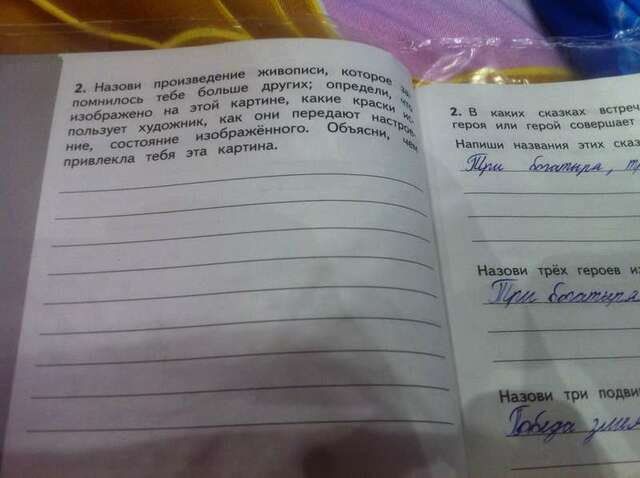 2. Назови произведение живописи, которое за-
помнилось тебе больше других; определи, что
изображено на этой картине, какие краски ис-
пользует художник, как они передают настрое-
ние, состояние изображённого. Объясни, чем
привлекла тебя эта картина.
2. В каких сказках встреч
героя или герой совершает
Напиши названия этих сказ
Три богатыря, тр
Назови трёх героев из
Три богатыря
Назови три подви
Победа змея